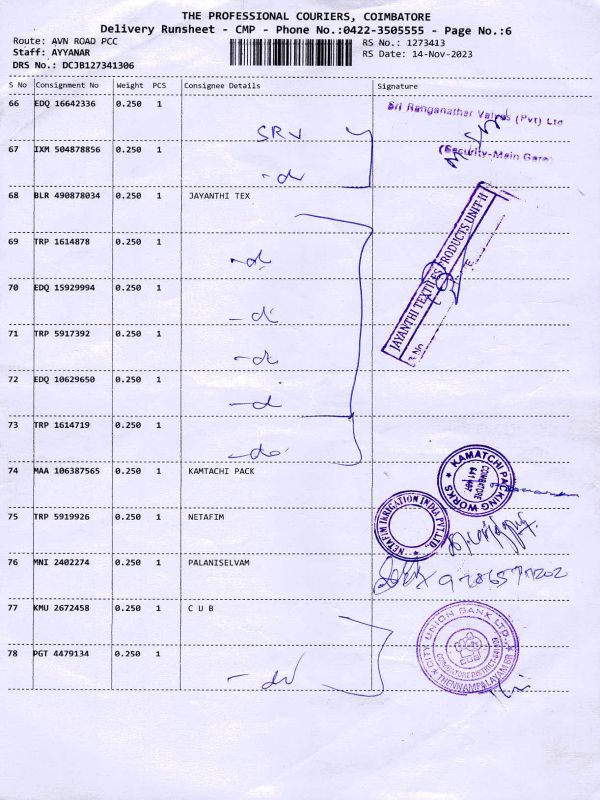 THE PROFESSIONAL COURIERS, COIMBATORE
Delivery Runsheet - CMP - Phone No.:0422-3505555 - Page No.:6
Route: AVN ROAD PCC
RS No.: 1273413
Staff: AYYANAR
RS Date: 14-Nov-2023
DRS No.: DCJB127341306
S No Consignment No Weight PCS Consignee Details Signature
66 EDQ 16642336 0.250 1
Sri Ranganathar Valves (Pvt) Ltd
SRV
67 IXM 504878856 0.250 1
(Security-Main Gate)
-do
68 BLR 490878034 0.250 1 JAYANTHI TEX
JAYANTHI TEXTILES PRODUCTS UNIT-II
69 TRP 1614878 0.250 1
-do
70 EDQ 15929994 0.250 1
-do
71 TRP 5917392 0.250 1
-do
72 EDQ 10629650 0.250 1
-do
73 TRP 1614719 0.250 1
-do
74 MAA 106387565 0.250 1 KAMTACHI PACK
KAMATCHI PACKING WORKS
COIMBATORE
75 TRP 5919926 0.250 1 NETAFIM
NETAFIM IRRIGATION INDIA PVT.LTD.,
76 MNI 2402274 0.250 1 PALANISELVAM
77 KMU 2672458 0.250 1 C U B
CITY UNION BANK LTD.,
THENNAMPALAYAM BR
78 PGT 4479134 0.250 1
-do